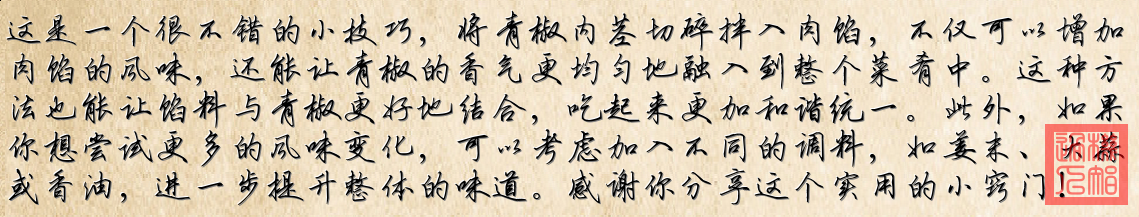 这是一个很不错的小技巧，将青椒内茎切碎拌入肉馅，不仅可以增加
肉馅的风味，还能让青椒的香气更均匀地融入到整个菜肴中。这种方
法也能让馅料与青椒更好地结合，吃起来更加和谐统一。此外，如果
你想尝试更多的风味变化，可以考虑加入不同的调料，如姜末、大蒜
或香油，进一步提升整体的味道。感谢你分享这个实用的小窍门！